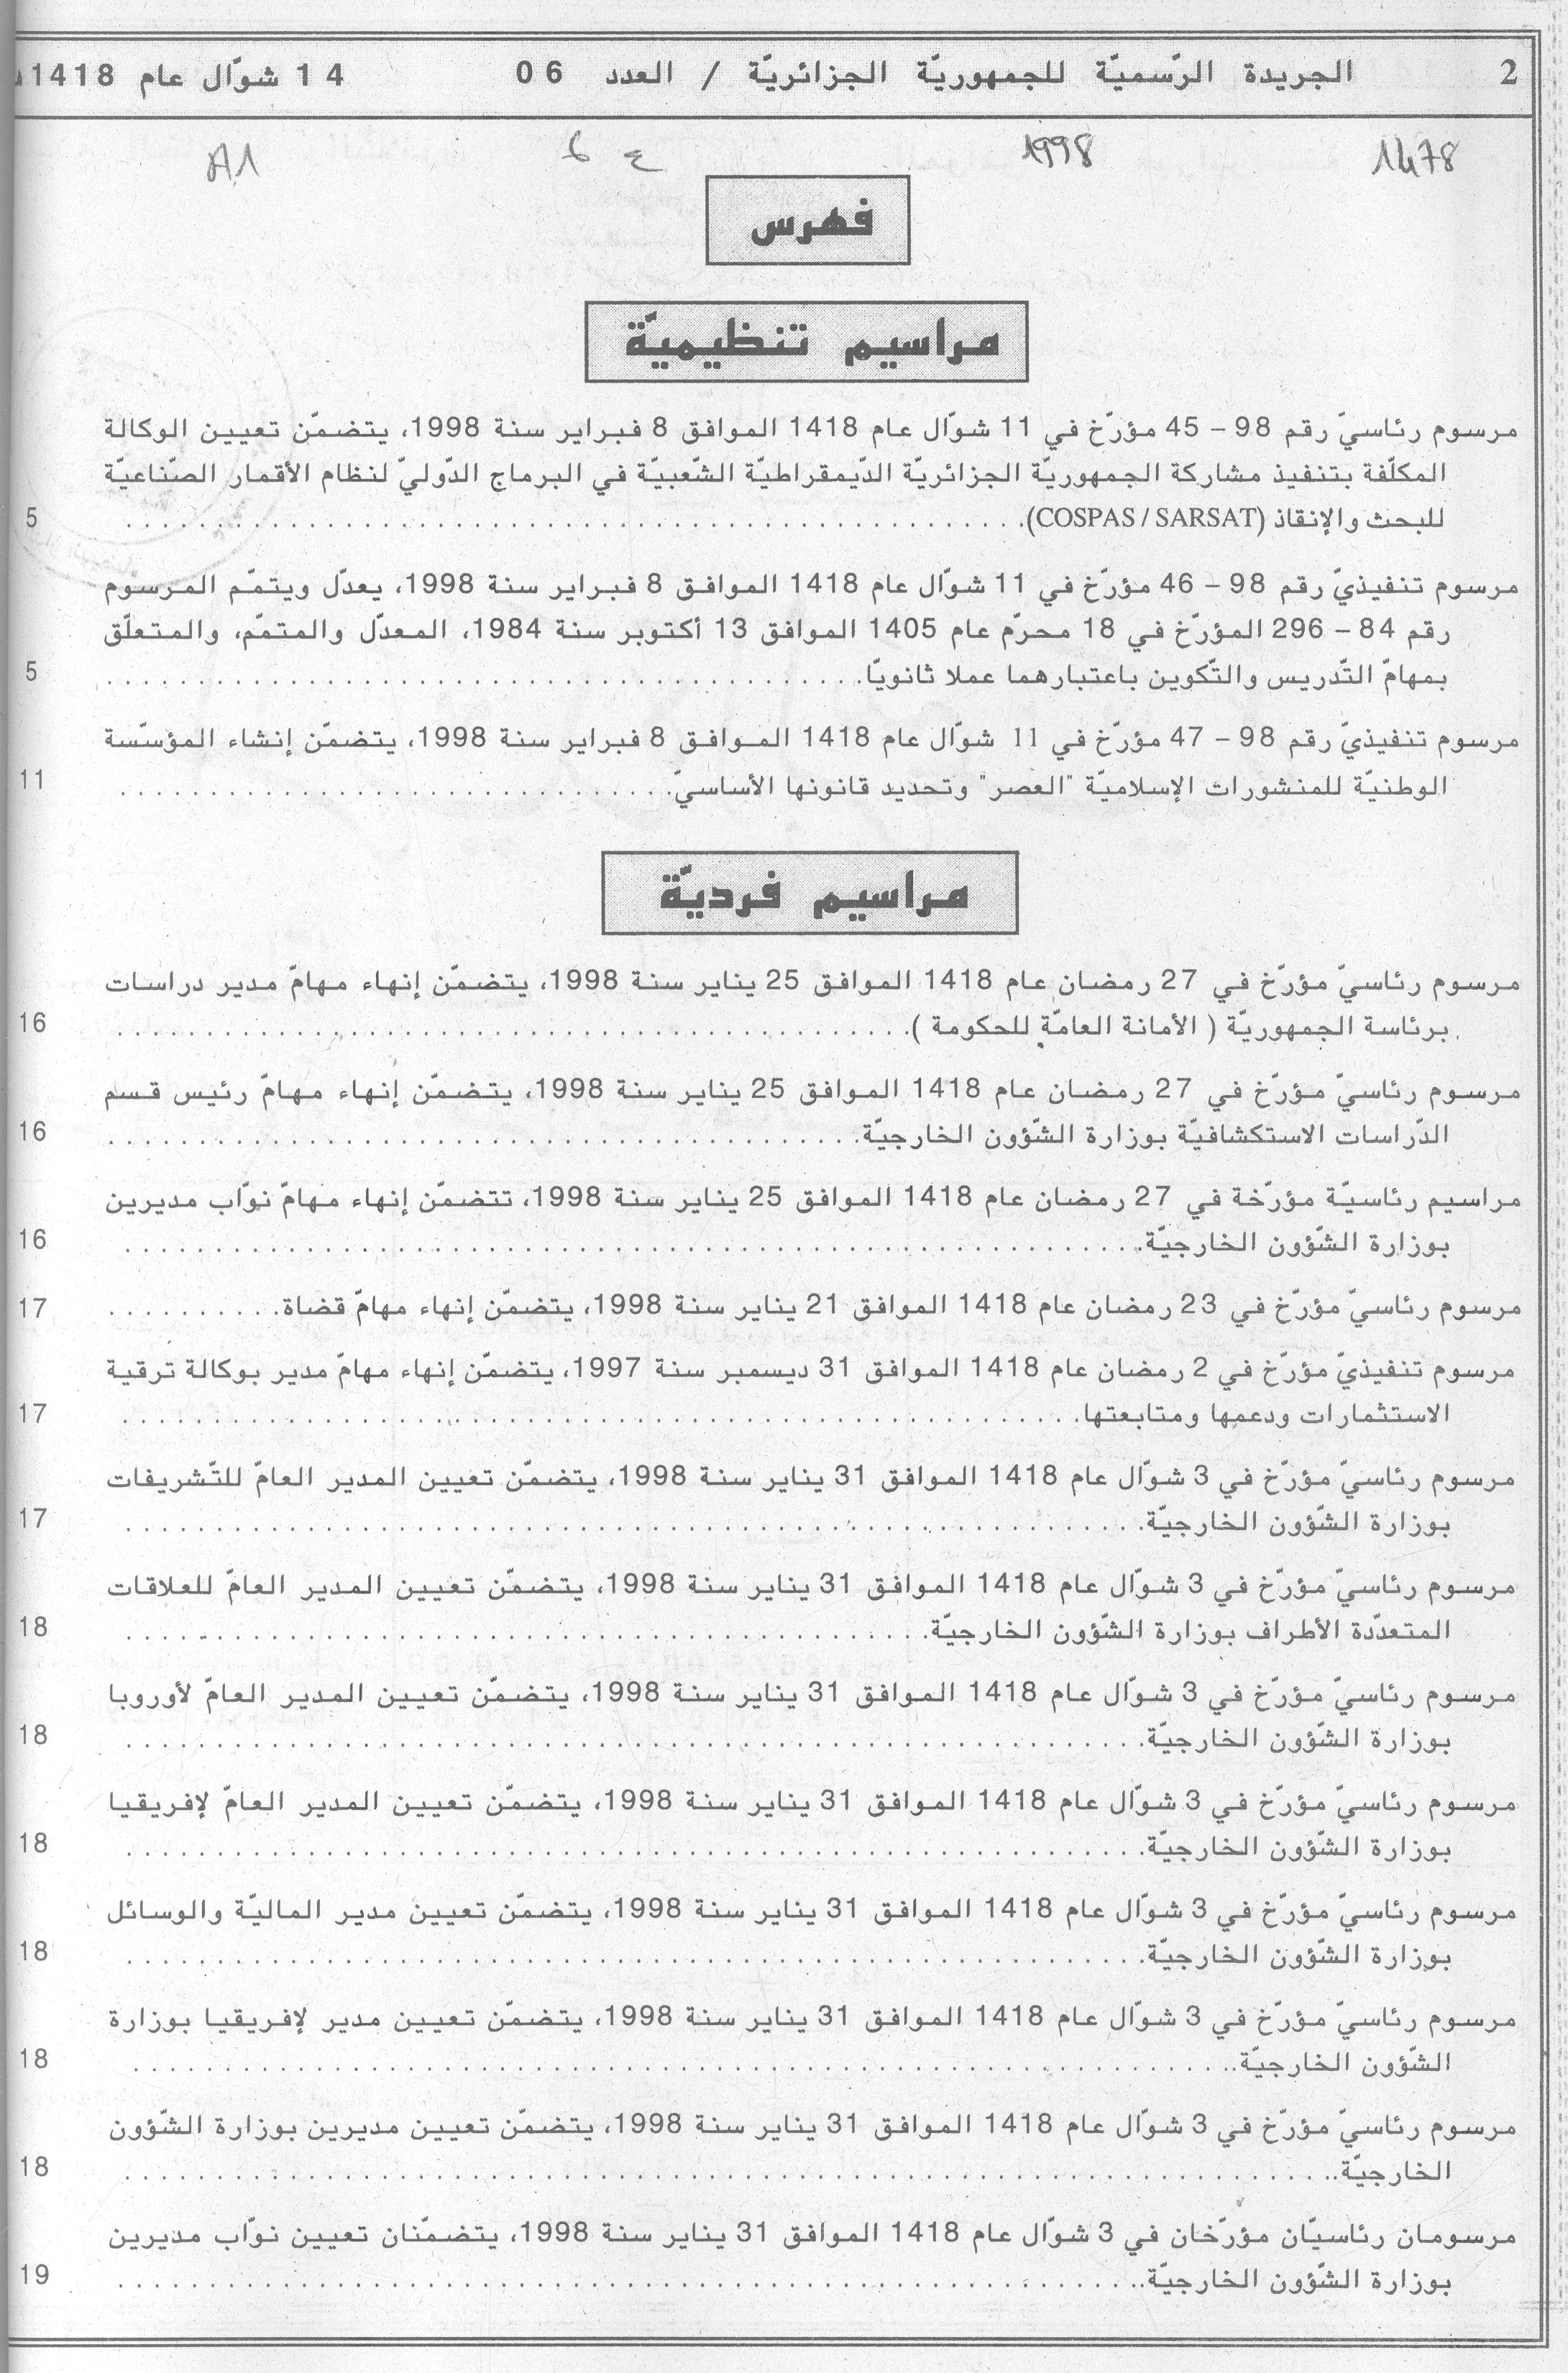 2 الجريدة الرّسميّة للجمهوريّة الجزائريّة / العدد 06 14 شوّال عام 1418
1478 1998 ع 6 A1
فهرس
مراسيم تنظيميّة
مرسوم رئاسيّ رقم 98 – 45 مؤرّخ في 11 شوّال عام 1418 الموافق 8 فبراير سنة 1998، يتضمّن تعيين الوكالة
المكلّفة بتنفيذ مشاركة الجمهوريّة الجزائريّة الدّيمقراطيّة الشّعبيّة في البرماج الدّوليّ لنظام الأقمار الصّناعيّة
للبحث والإنقاذ (COSPAS / SARSAT). . . . . . . . . . 5
مرسوم تنفيذيّ رقم 98 – 46 مؤرّخ في 11 شوّال عام 1418 الموافق 8 فبراير سنة 1998، يعدّل ويتمّم المرسوم
رقم 84 – 296 المؤرّخ في 18 محرّم عام 1405 الموافق 13 أكتوبر سنة 1984، المعدّل والمتمّم، والمتعلّق
بمهامّ التّدريس والتّكوين باعتبارهما عملا ثانويّا. . . . . . . . . . 5
مرسوم تنفيذيّ رقم 98 – 47 مؤرّخ في 11 شوّال عام 1418 الموافق 8 فبراير سنة 1998، يتضمّن إنشاء المؤسّسة
الوطنيّة للمنشورات الإسلاميّة "العصر" وتحديد قانونها الأساسيّ. . . . . . . . . . 11
مراسيم فرديّة
مرسوم رئاسيّ مؤرّخ في 27 رمضان عام 1418 الموافق 25 يناير سنة 1998، يتضمّن إنهاء مهامّ مدير دراسات
برئاسة الجمهوريّة ( الأمانة العامّة للحكومة ). . . . . . . . . . 16
مرسوم رئاسيّ مؤرّخ في 27 رمضان عام 1418 الموافق 25 يناير سنة 1998، يتضمّن إنهاء مهامّ رئيس قسم
الدّراسات الاستكشافيّة بوزارة الشّؤون الخارجيّة. . . . . . . . . . 16
مراسيم رئاسيّة مؤرّخة في 27 رمضان عام 1418 الموافق 25 يناير سنة 1998، تتضمّن إنهاء مهامّ نوّاب مديرين
بوزارة الشّؤون الخارجيّة. . . . . . . . . . 16
مرسوم رئاسيّ مؤرّخ في 23 رمضان عام 1418 الموافق 21 يناير سنة 1998، يتضمّن إنهاء مهامّ قضاة. . . . . . . . . . 17
مرسوم تنفيذيّ مؤرّخ في 2 رمضان عام 1418 الموافق 31 ديسمبر سنة 1997، يتضمّن إنهاء مهامّ مدير بوكالة ترقية
الاستثمارات ودعمها ومتابعتها. . . . . . . . . . 17
مرسوم رئاسيّ مؤرّخ في 3 شوّال عام 1418 الموافق 31 يناير سنة 1998، يتضمّن تعيين المدير العامّ للتّشريفات
بوزارة الشّؤون الخارجيّة. . . . . . . . . . 17
مرسوم رئاسيّ مؤرّخ في 3 شوّال عام 1418 الموافق 31 يناير سنة 1998، يتضمّن تعيين المدير العامّ للعلاقات
المتعدّدة الأطراف بوزارة الشّؤون الخارجيّة. . . . . . . . . . 18
مرسوم رئاسيّ مؤرّخ في 3 شوّال عام 1418 الموافق 31 يناير سنة 1998، يتضمّن تعيين المدير العامّ لأوروبا
بوزارة الشّؤون الخارجيّة. . . . . . . . . . 18
مرسوم رئاسيّ مؤرّخ في 3 شوّال عام 1418 الموافق 31 يناير سنة 1998، يتضمّن تعيين المدير العامّ لإفريقيا
بوزارة الشّؤون الخارجيّة. . . . . . . . . . 18
مرسوم رئاسيّ مؤرّخ في 3 شوّال عام 1418 الموافق 31 يناير سنة 1998، يتضمّن تعيين مدير الماليّة والوسائل
بوزارة الشّؤون الخارجيّة. . . . . . . . . . 18
مرسوم رئاسيّ مؤرّخ في 3 شوّال عام 1418 الموافق 31 يناير سنة 1998، يتضمّن تعيين مدير لإفريقيا بوزارة
الشّؤون الخارجيّة. . . . . . . . . . 18
مرسوم رئاسيّ مؤرّخ في 3 شوّال عام 1418 الموافق 31 يناير سنة 1998، يتضمّن تعيين مديرين بوزارة الشّؤون
الخارجيّة. . . . . . . . . . 18
مرسومان رئاسيّان مؤرّخان في 3 شوّال عام 1418 الموافق 31 يناير سنة 1998، يتضمّنان تعيين نوّاب مديرين
بوزارة الشّؤون الخارجيّة. . . . . . . . . . 19